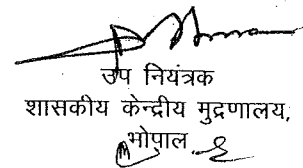 उप नियंत्रक
शासकीय केन्द्रीय मुद्रणालय,
भोपाल.